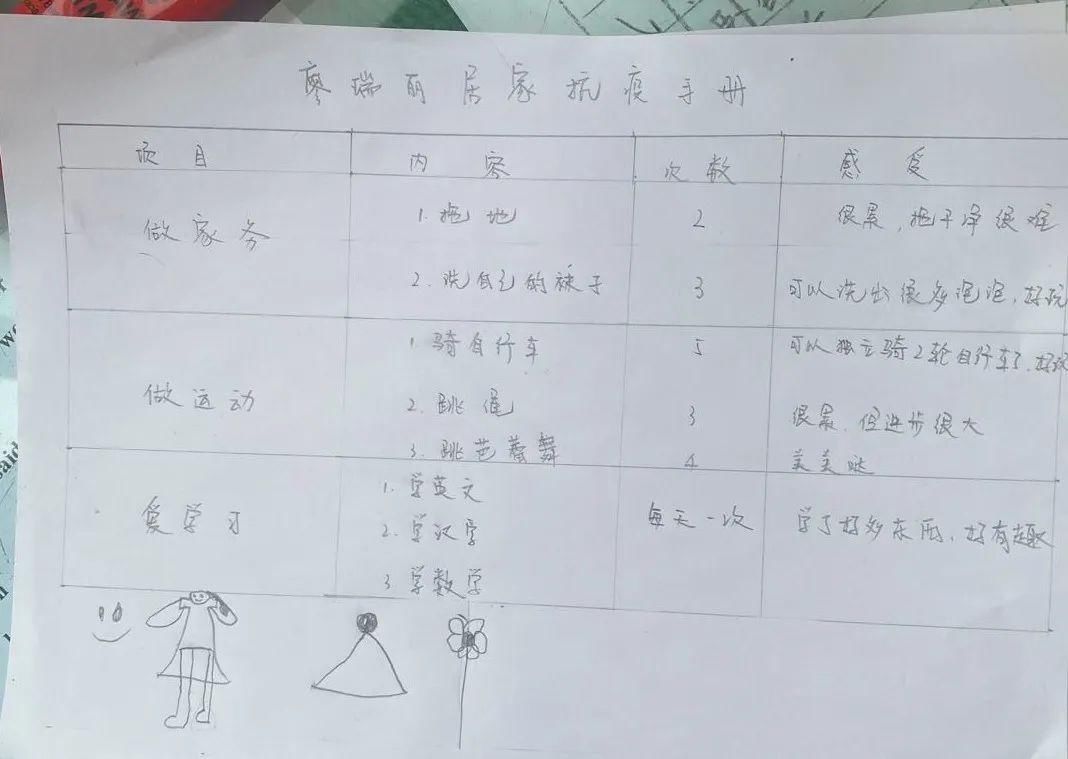 廖瑞丽居家抗疫手册
项目 内容 次数 感受
做家务 1.拖地 2 很累,拖干净很难
2.洗自己的袜子 3 可以洗出很多泡泡,好玩
做运动 1.骑自行车 5 可以独立骑2轮自行车了,好玩
2.跳绳 3 很累,但进步很大
3.跳芭蕾舞 4 美美哒
爱学习 1.学英文 每天一次 学了好多东西,好有趣
2.学汉字
3.学数学